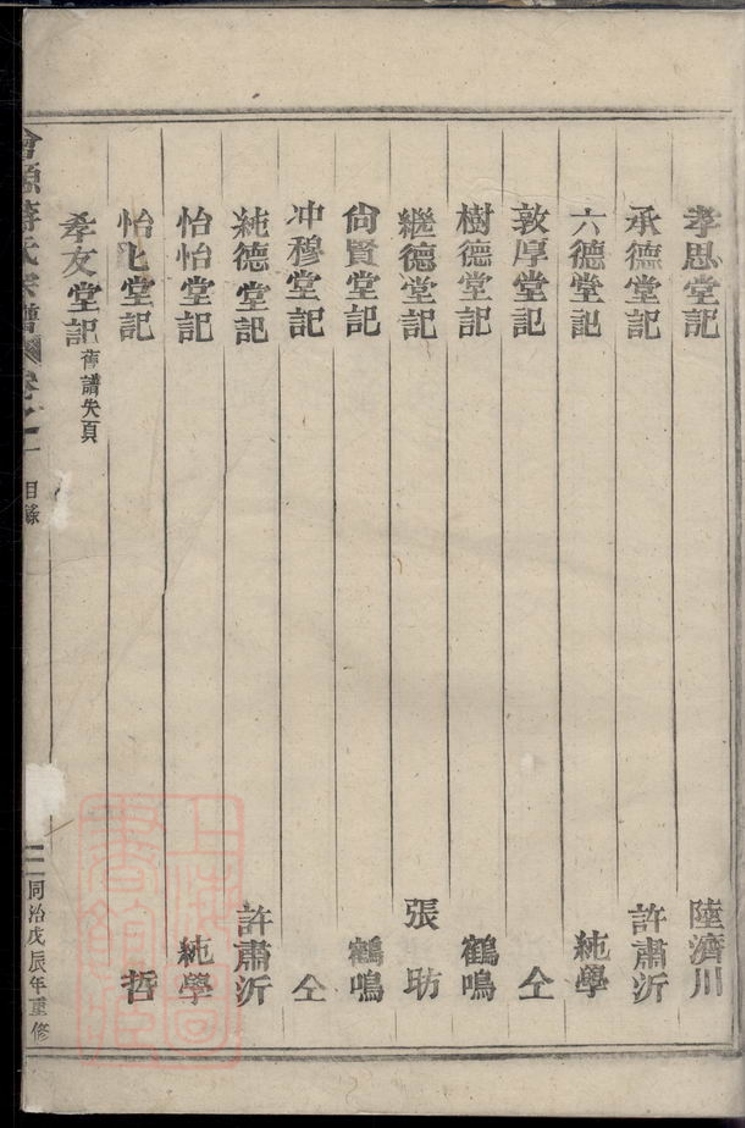 孝思堂記 陸濟川
承德堂記 許肅沂
六德堂記 純學
敦厚堂記 仝
樹德堂記 鶴鳴
繼德堂記 張昉
尙賢堂記 鶴鳴
冲穆堂記 仝
純德堂記 許肅沂
怡怡堂記 純學
怡飞堂記 哲
孝友堂記 舊譜失頁
蔣氏宗譜 卷之一 目錄 二 同治戊辰年重修
上海圖書館藏